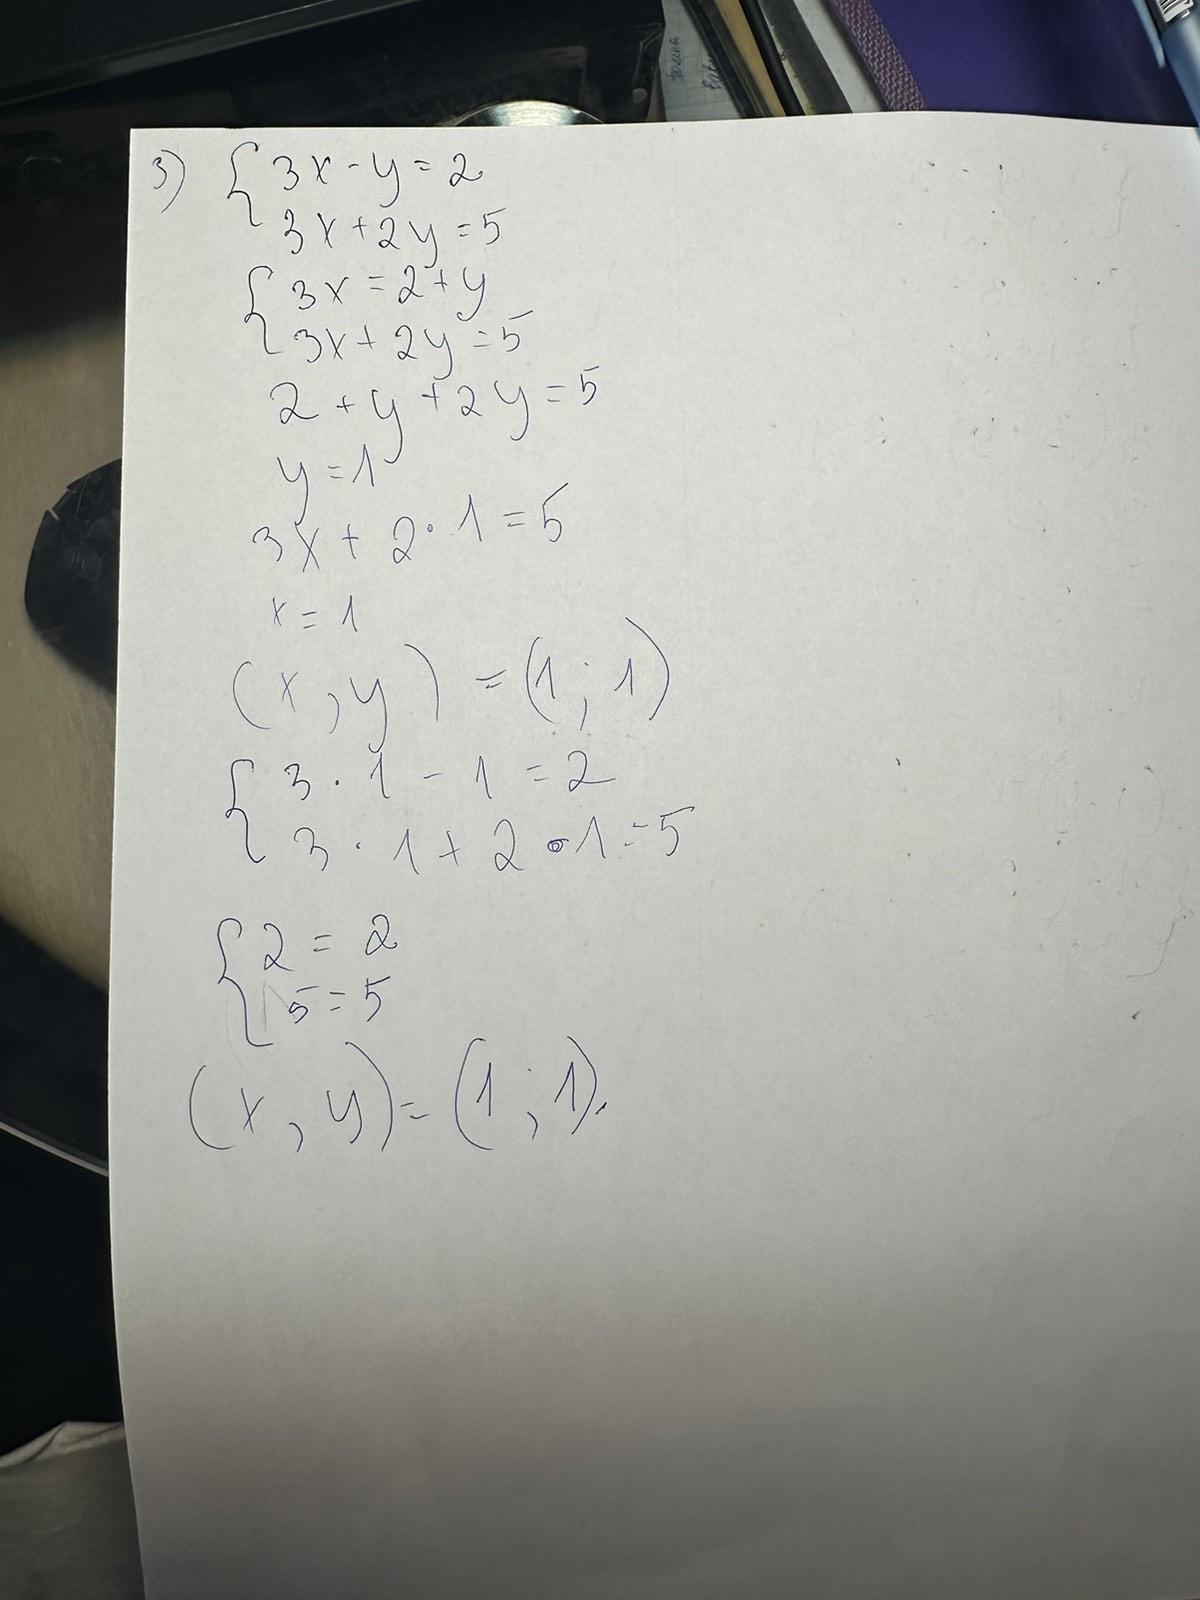 3) { 3x - y = 2
3x + 2y = 5
{ 3x = 2 + y
3x + 2y = 5
2 + y + 2y = 5
y = 1
3x + 2 · 1 = 5
x = 1
(x, y) = (1; 1)
{ 3 · 1 - 1 = 2
3 · 1 + 2 · 1 = 5
{ 2 = 2
5 = 5
(x, y) = (1; 1).